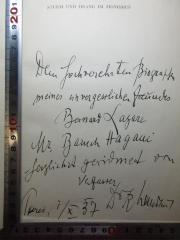 STURM UND DRANG IM HONORES
Dem hochverehrten Biographen
meines unvergesslichen Freundes
Bernard Lazare
Mr. Baruch Hagani
herzlichst gewidmet vom
Verfasser
Paris, X 37